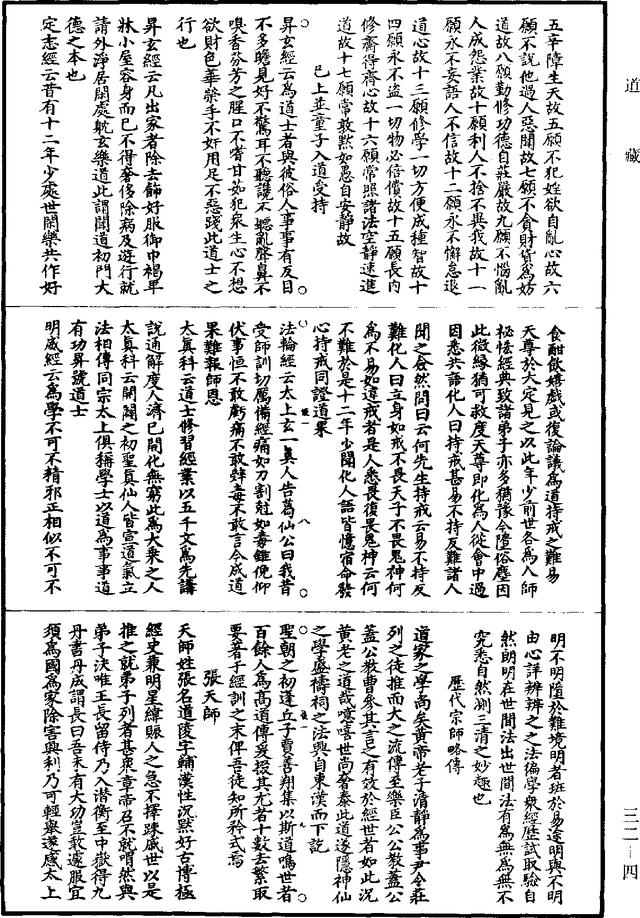 道藏
五辛障生天故五願不犯婬欲自亂心故六
願不說他過人惡聞故七願不貪財貨為妨
道故八願勤修功德自莊嚴故九願不惱亂
人成怨業故十願利人不捨不與我故十一
願永不妄語人不信故十二願永不懈怠退
道心故十三願修學一切方便成種智故十
四願永不盜一切物必倍償故十五願長內
修齋得齋心故十六願常照諸法空靜速進
道故十七願常敢默如愚自安靜故
已上並童子入道受持
昇玄經云為道士者與彼俗人事事有反目
不多瞻見好不驚耳不聽讒不聽亂聲鼻不
嗅香芬芳之腥口不嗜甘苾犯衆生心不想
欲財色華榮手不奸用足不惡踐此道士之
行也
昇玄經云凡出家者除去飾好服御巾褐單
牀小屋容身而已不得奢侈除病及遊行就
請外淨居閑處躭玄樂道此謂聞道初門大
德之本也
定志經云昔有十二年少處世閑樂共作好
食酣飲嬉戲或復論議為道持戒之難易
天尊於大定見之以此年少前世各為人師
祕悋經典致諸弟子亦多猶豫令墮俗塵因
此微緣猶可救度天尊即化為人從會中過
因悉共語化人曰持戒甚易不持反難諸人
聞之僉然問曰云何先生持戒云易不持反
難化人曰立身如戒不畏天子不畏鬼神何
為不易如違戒者是人悉畏復畏鬼神云何
不難於是十二年少聞化人語皆憶宿命發
心持戒同證道果
法輪經云太上玄一真人告葛仙公曰我昔
受師訓切厲備經痛如刀割尅如毒錐俛仰
伏事恒不敢虧痛不敢辭毒不敢言今成道
果難報師恩
太真科云道士修習經業以五千文為先講
說通解度人濟已開化無窮此為大乘之人
太真科云開闢之初聖真仙人皆宣道氣立
法相傳同宗太上俱稱學士以道為事事道
有功昇號道士
明威經云為學不可不精邪正相似不可不
明不明墮於難境明者班於易塗明與不明
由心詳辨辨之之法徧學衆經歷試取驗自
然朗明在世間法出世間法有為無為無不
究悉自然測三清之妙趣也
歷代宗師略傳
道家之學尚矣黃帝老子清靜為事尹令莊
列之徒推而大之流傳至樂臣公公教蓋公
蓋公教曹參其言之有效於經世者如此況
黃老之道哉噫嘻世尚奢泰此道遂隱神仙
之學盛禱祠之法興自東漢而下訖
聖朝之初逢丘子賈善翔集以斯道鳴世者
百餘人為高道傳爰掇其尤者十數去繁取
要著于經訓之末俾吾徒知所矜式焉
張天師
天師姓張名道陵字輔漢性沉黙好古博極
經史兼明星緯賑人之急不擇踈戚世以是
推之就弟子列者甚衆章帝召不就喟然與
弟子決唯王長留侍乃入潛衡至中嶽得九
丹書丹成謂長曰吾未有大功豈敢遽服宜
須為國為家除害興利乃可輕舉遂感太上
三二－四